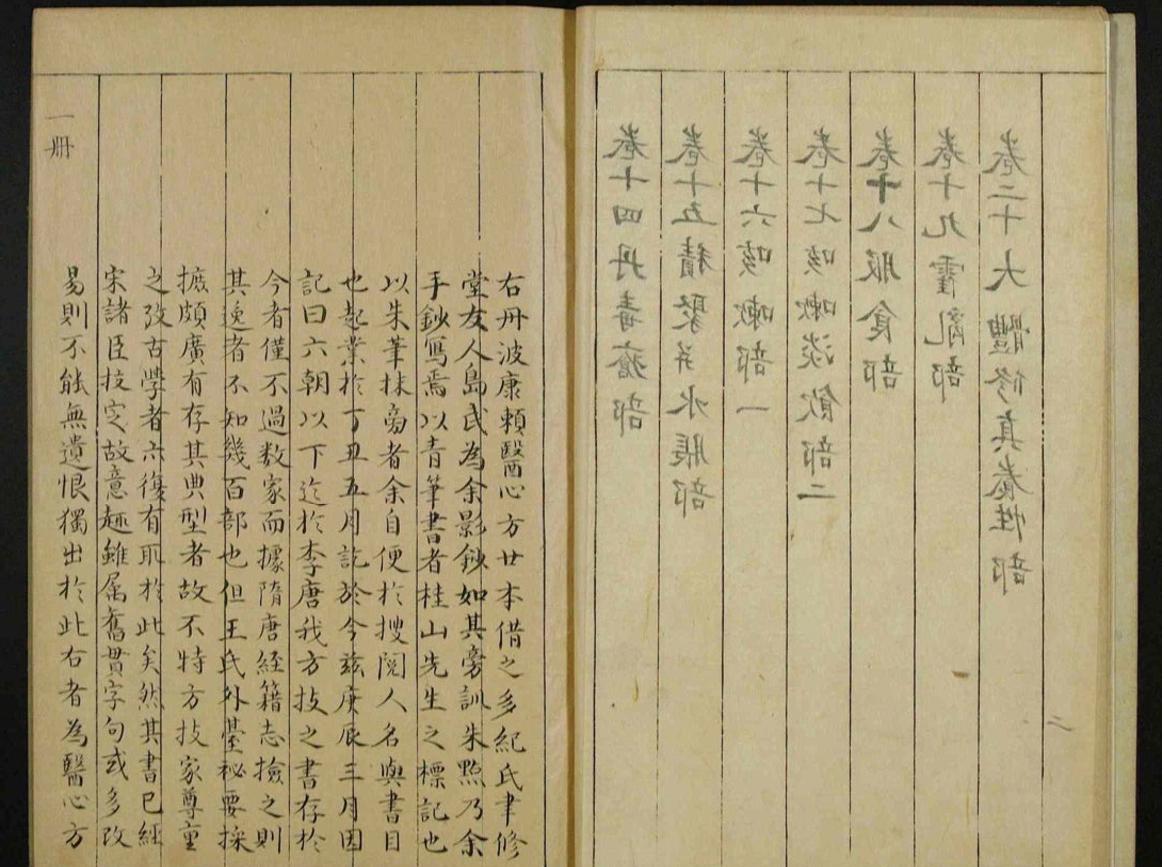 卷十四丹毒瘡部
卷十五積聚并水脹部
卷十六咳嗽部一
卷十七咳嗽淡飲部二
卷十八服食部
卷十九霍亂部
卷二十大體修真養性部
二
右丹波康頼醫心方廿本借之多紀氏聿修
堂友人島氏為余影鈔如其旁訓朱㸃乃余
手鈔寫焉以青筆書者桂山先生之標記也
以朱筆抹旁者余自便於搜閲人名與書目
也起業於丁丑五月訖於今兹庚辰三月因
記曰六朝以下迄於李唐我方技之書存於
今者僅不過数家而據隋唐經籍志撿之則
其逸者不知幾百部也但王氏外臺秘要採
摭頗廣有存其典型者故不特方技家尊重
之攷古學者亦復有取於此矣然其書已經
宋諸臣挍定故意趣雖属舊貫字句或多改
易則不能無遺恨獨出於此右者為醫心方
一册